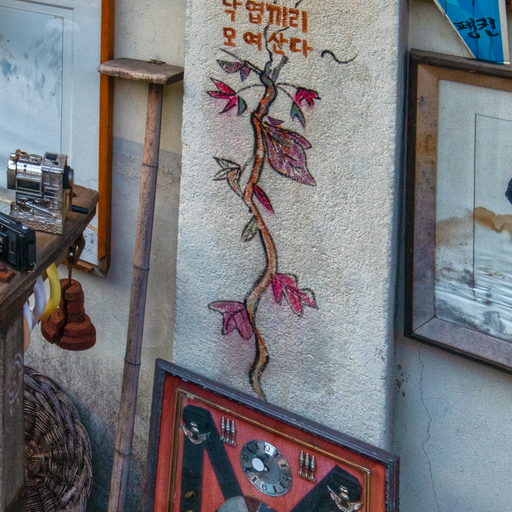 낙엽끼리
모여산다
펭귄